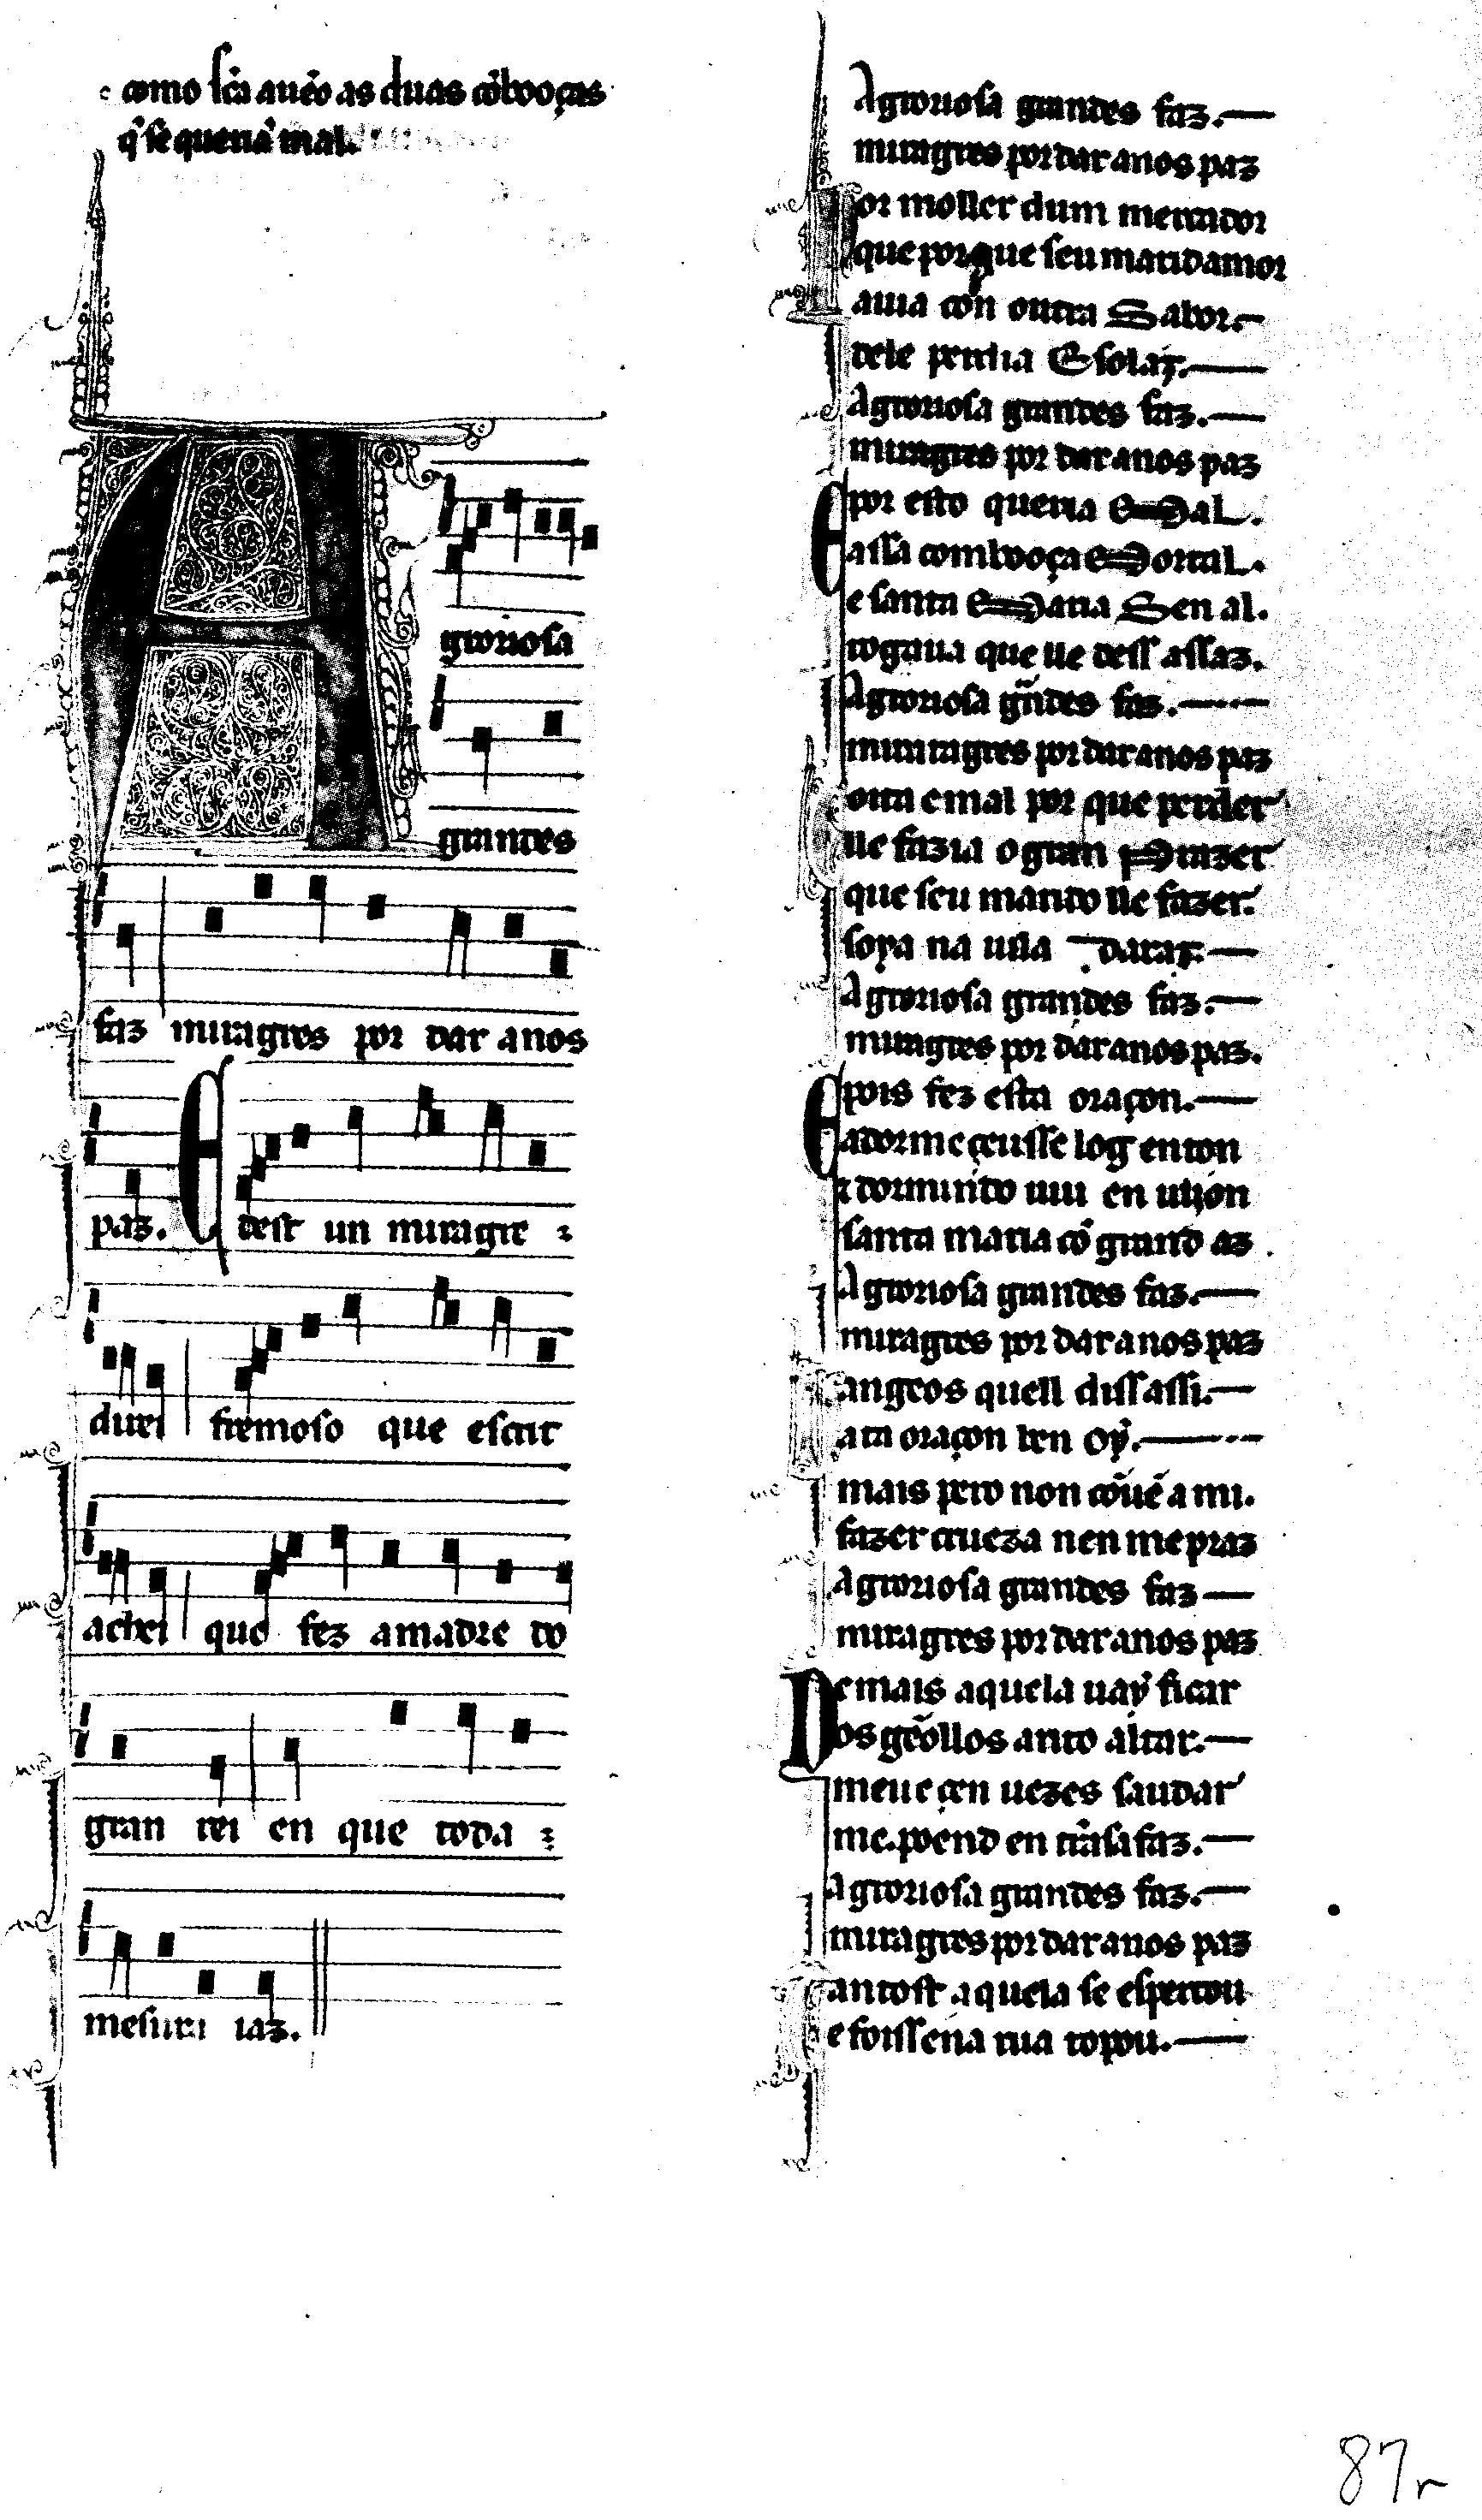 como sc̃a auẽo as duas cõbooças
q̃ se queriã mal.
A
groriosa
grandes
faz miragres por dar anos
paz. E dest un miragre
durei fremoso que escrit
achei que fez a madre do
gran rei en que toda
mesura iaz.
A groriosa grandes faz.
miragres por dar anos paz
or moller dum mercador
que porque seu maridamor
auia con outra Sabor.
dele perdia E solaz.
A groriosa grandes faz.
miragres por dar anos paz
E por esto queria Mal.
assa combooça Mortal.
e santa Maria Sen al.
rogaua que lle dess assaz.
A groriosa grãdes faz.
miragres por dar anos paz
oita e mal por que perder
lle fazia o gran Prazer
que seu marido lle fazer.
soya na uila darraz.
A groriosa grandes faz.
miragres por dar anos paz.
E pois fez esta oraçon.
adormeçeusse log enton
e dormindo uiu en uijon
santa maria cõ grand az.
A groriosa grandes faz.
miragres por dar anos paz
angeos quell diss assi.
a ta oraçon ben oy.
mais pero non cõuẽ a mi.
fazer crueza nen me praz
A groriosa grandes faz
miragres por dar anos paz
Demais aquela uay ficar
os gẽollos anto altar.
meu e çen uezes saudar
me poend en terra sa faz.
A groriosa grandes faz.
miragres por dar anos paz
antost aquela se espertou
e foisse na rua topou.
87r